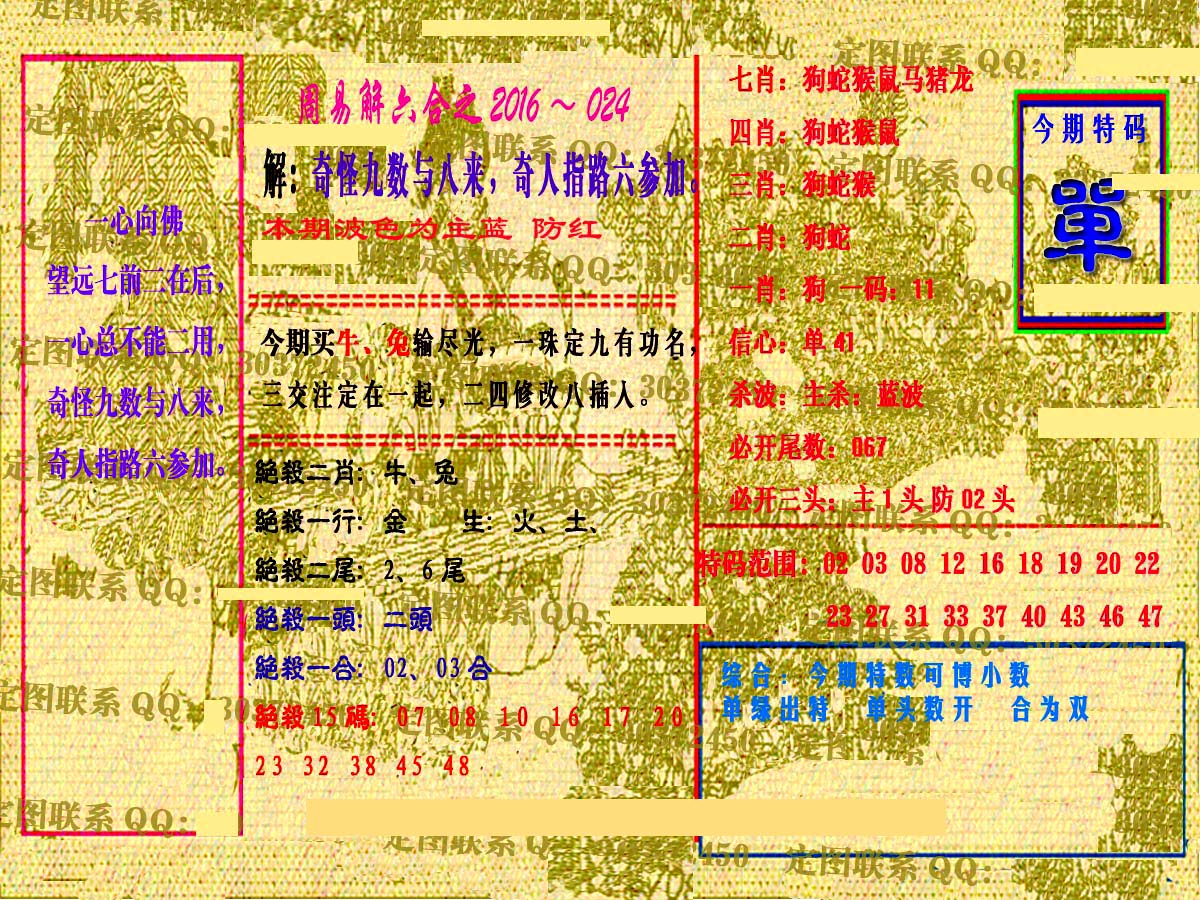 周易解六合之2016～024
一心向佛
望远七前二在后，
一心总不能二用，
奇怪九数与八来，
奇人指路六参加。
解：奇怪九数与八来，奇人指路六参加。
本期波色为主蓝 防红
今期买牛、兔输尽光，一珠定九有功名，
三交注定在一起，二四修改八插人。
絕殺二肖：牛、兔
絕殺一行：金 生：火、土、
絕殺二尾：2、6尾
絕殺一頭：二頭
絕殺一合：02、03合
絕殺15碼：07 08 10 16 17 20
23 32 38 45 48
七肖：狗蛇猴鼠马猪龙
四肖：狗蛇猴鼠
三肖：狗蛇猴
二肖：狗蛇
一肖：狗 一码：11
信心：单41
杀波：主杀：蓝波
必开尾数：067
必开三头：主1头防02头
今期特码
單
特码范围：02 03 08 12 16 18 19 20 22
23 27 31 33 37 40 43 46 47
综合：今期特数可博小数
单绿出特 单头数开 合为双
定图联系QQ：